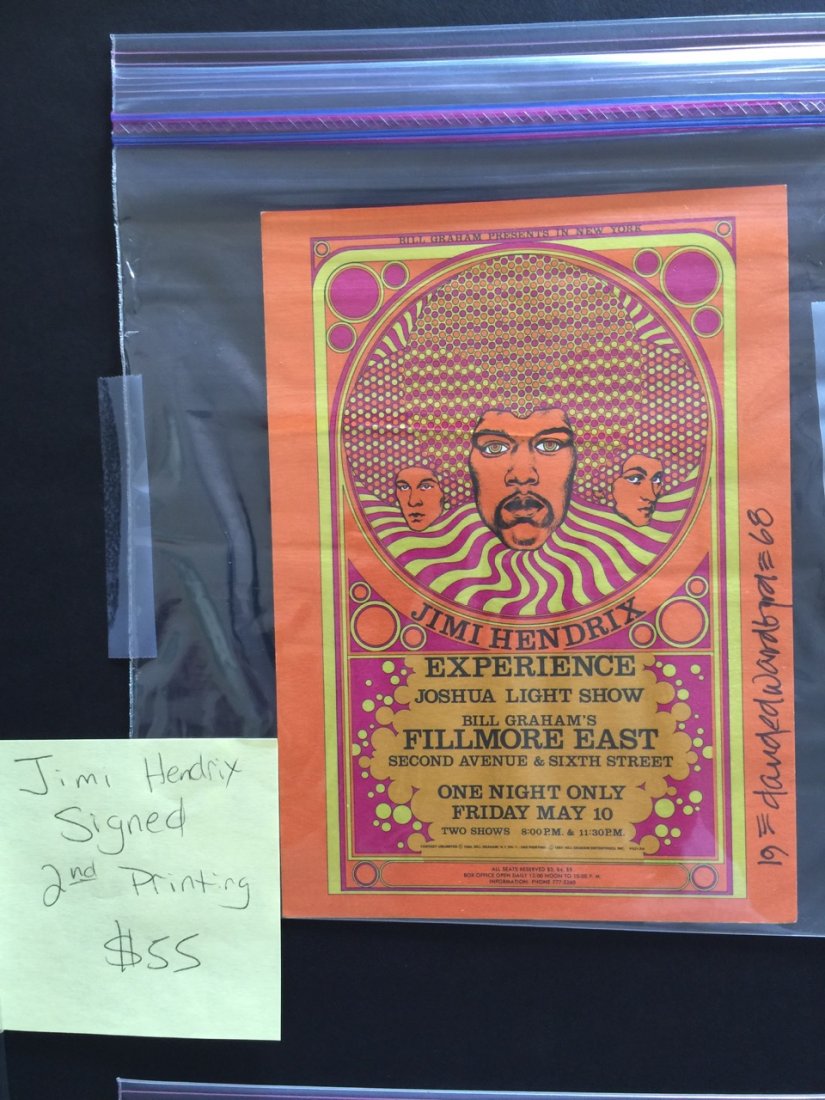 BILL GRAHAM PRESENTS IN NEW YORK
JIMI HENDRIX
EXPERIENCE
JOSHUA LIGHT SHOW
BILL GRAHAM'S
FILLMORE EAST
SECOND AVENUE & SIXTH STREET
ONE NIGHT ONLY
FRIDAY MAY 10
TWO SHOWS 8:00 P.M. & 11:30 P.M.
ALL SEATS RESERVED $3, $4, $5
BOX OFFICE OPEN DAILY 12:00 NOON TO 10:00 P. M.
INFORMATION: PHONE 777-5260
19=davidedwardbyrd=68
Jimi Hendrix
Signed
2nd Printing
$55